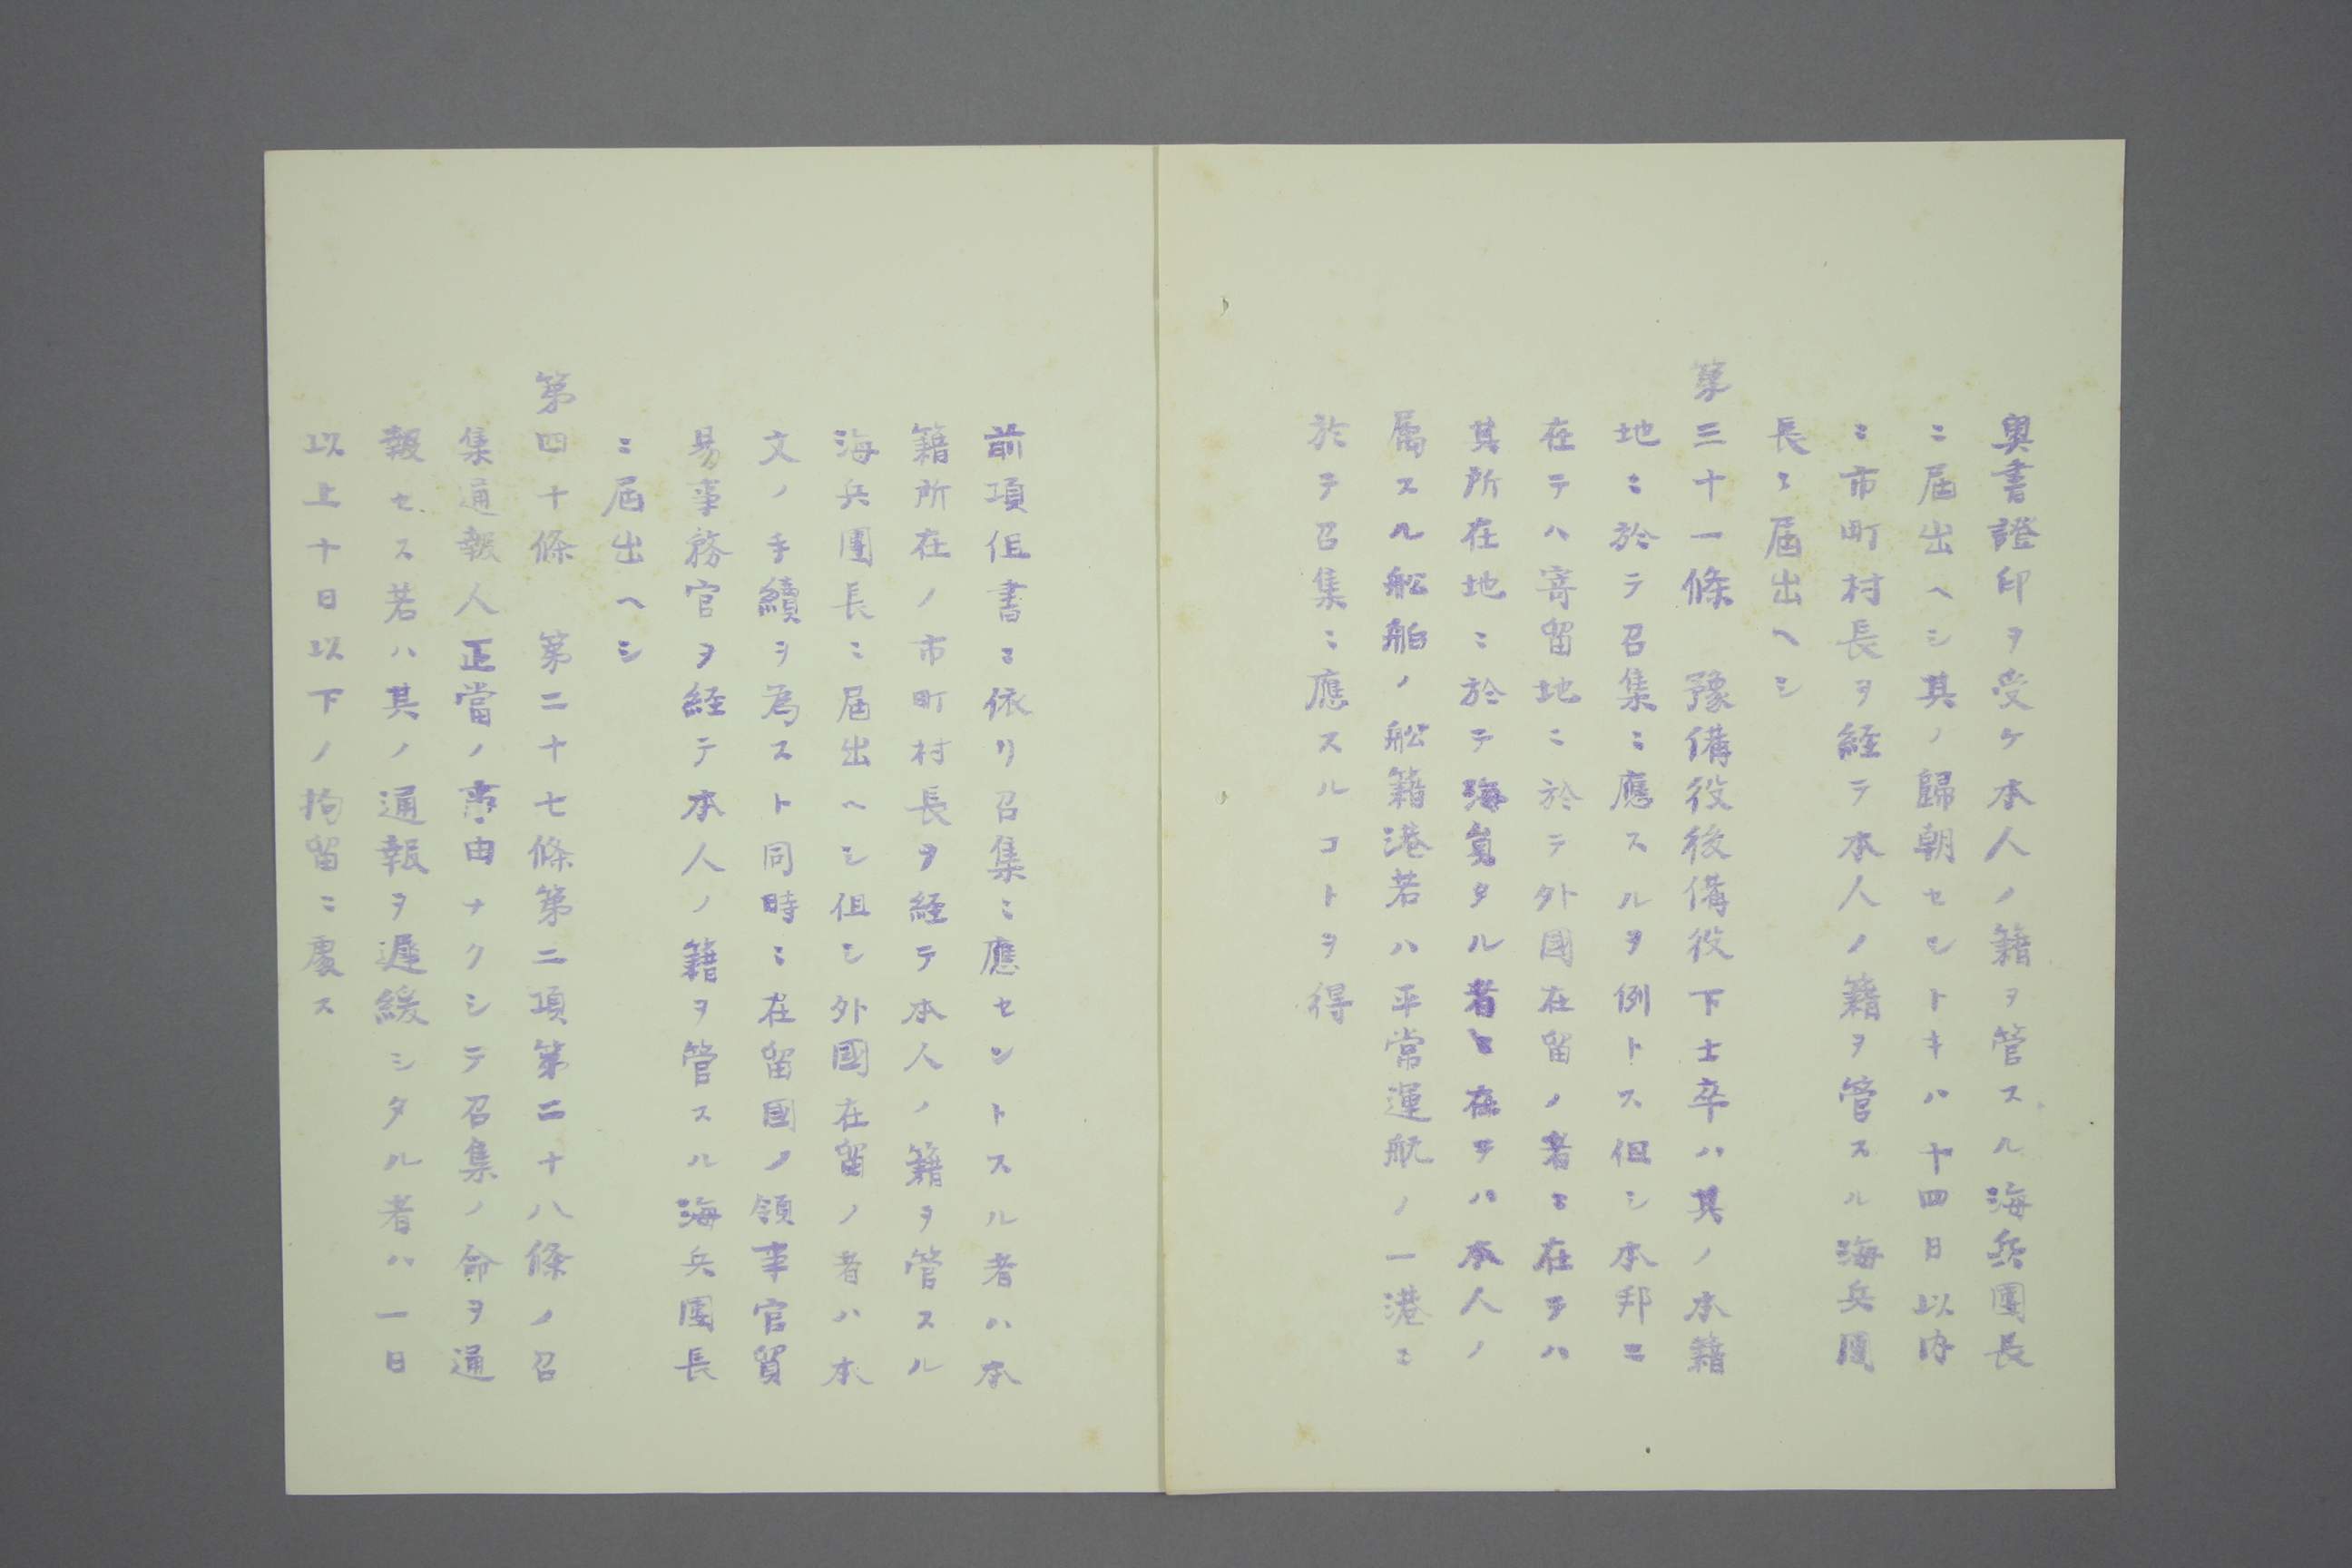 奥書證印ヲ受ケ本人ノ籍ヲ管スル海兵團長
ニ届出ヘシ其ノ歸朝セシトキハ十四日以内
ニ市町村長ヲ経テ本人ノ籍ヲ管スル海兵團
長ニ届出ヘシ
第三十一條　豫備役後備役下士卒ハ其ノ本籍
地ニ於テ召集ニ應スルヲ例トス但シ本邦ニ
在テハ寄留地ニ於テ外國在留ノ者ニ在テハ
其所在地ニ於テ海員タル者ニ在テハ本人ノ
属スル舩舶ノ舩籍港若ハ平常運航ノ一港ニ
於テ召集ニ應スルコトヲ得
前項但書ニ依リ召集ニ應セントスル者ハ本
籍所在ノ市町村長ヲ経テ本人ノ籍ヲ管スル
海兵團長ニ届出ヘシ但シ外國在留ノ者ハ本
文ノ手續ヲ為スト同時ニ在留國ノ領事官貿
易事務官ヲ経テ本人ノ籍ヲ管スル海兵團長
ニ届出ヘシ
第四十條　第二十七條第二項第二十八條ノ召
集通報人正當ノ事由ナクシテ召集ノ命ヲ通
報セス若ハ其ノ通報ヲ遅緩シタル者ハ一日
以上十日以下ノ拘留ニ處ス